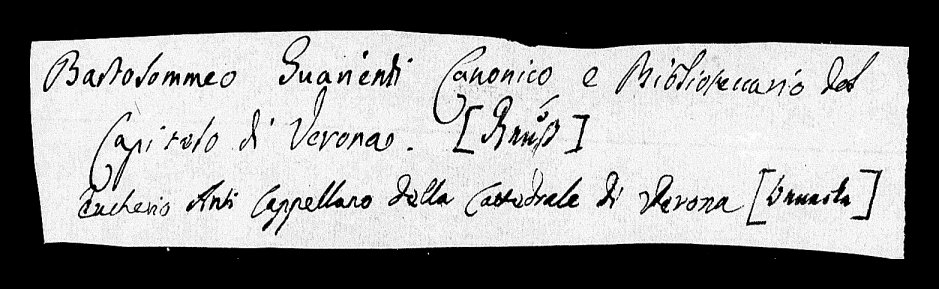 Bartolommeo Guarienti Canonico e Bibliotecario del
Capitolo di Verona.
Eucherio Anti Cappellano della Cattedrale di Verona